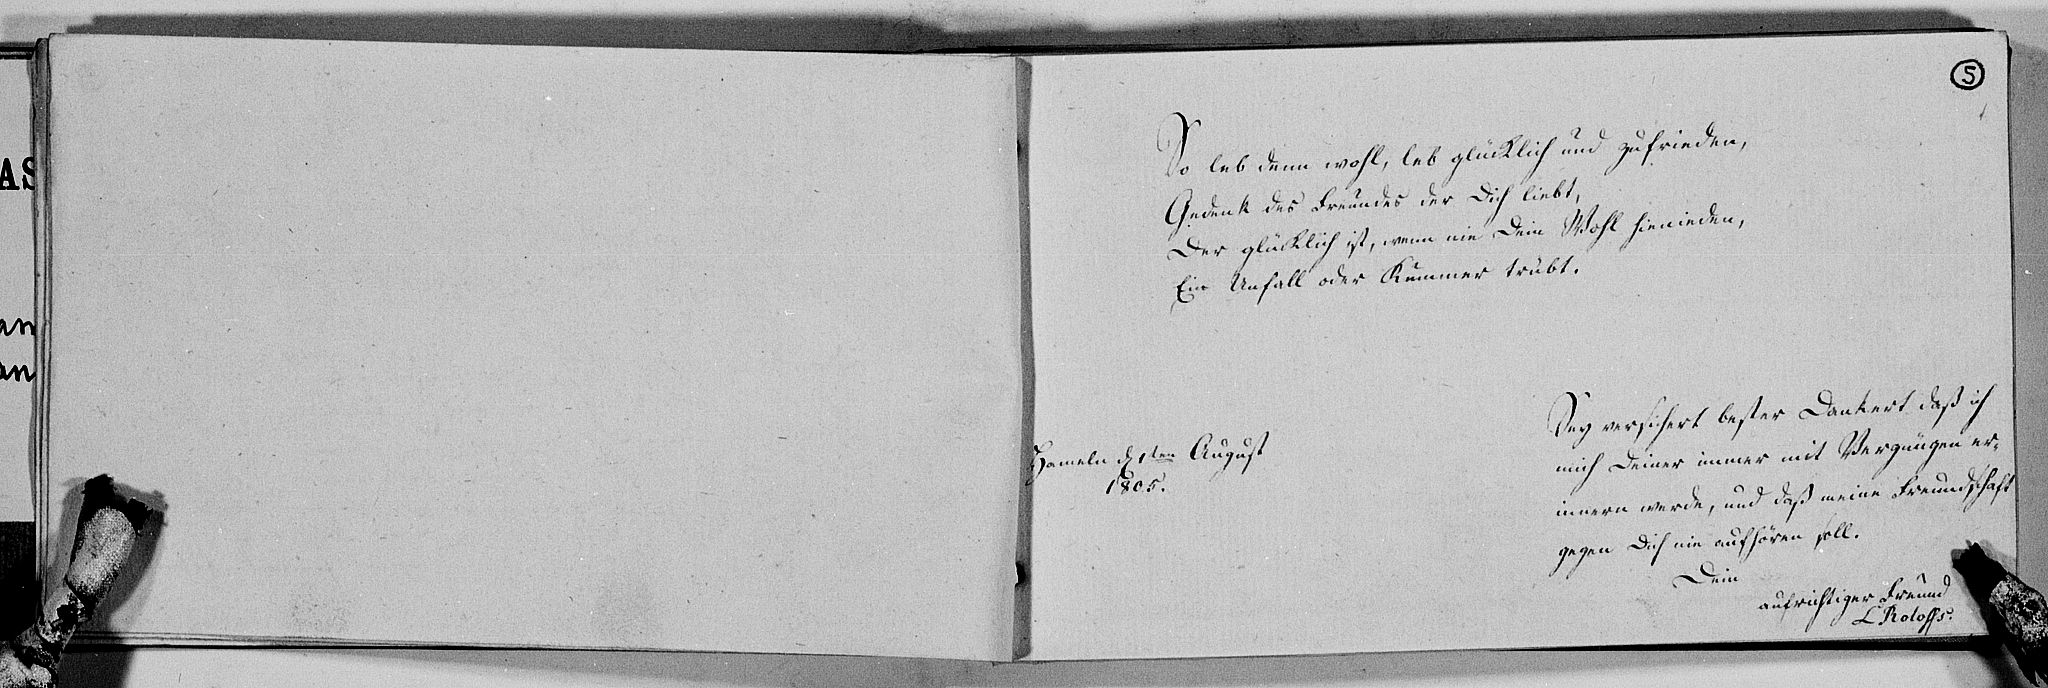 5
So leb denn wohl, leb glücklich und zufrieden,
Gedenk des Freundes der Dich liebt,
Der glücklich ist, wenn nie Dein Wohl hienieden,
Ein Unfall oder Kummer trübt.
Sey versichert bester Dankert daß ich
mich Deiner immer mit Vergnügen er-
innern werde, und daß meine Freundschaft
gegen Dich nie aufhören soll.
Dein
aufrichtiger Freund
L Roloffs.
Hameln d 1ten August
1805.
AS
an
an